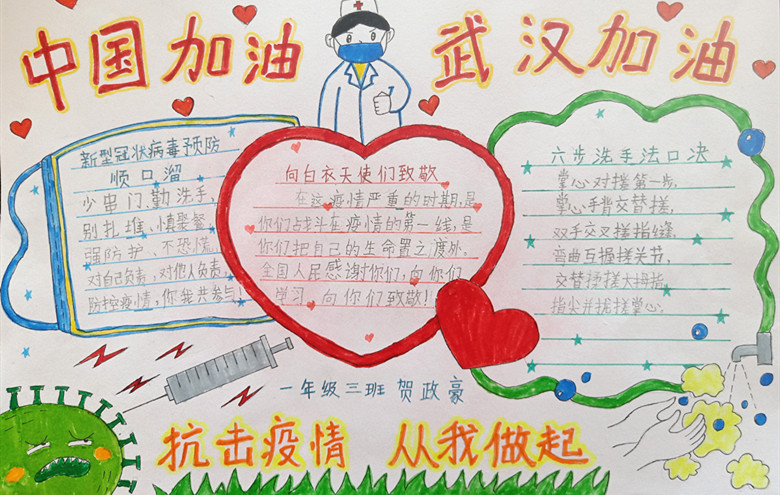 中国加油
武汉加油
新型冠状病毒预防
顺口溜
少串门勤洗手,
别扎堆、慎聚餐,
强防护、不恐慌,
对自己负责,对他人负责,
防控疫情,你我共参与!
向白衣天使们致敬
在这疫情严重的时期,是
你们战斗在疫情的第一线,是
你们把自己的生命置之度外。
全国人民感谢你们,向你们
学习,向你们致敬!
六步洗手法口决
掌心对搓第一步,
掌心手背交替搓,
双手交叉搓指缝,
弯曲互握搓关节,
交替揉搓大拇指,
指尖并拢搓掌心。
一年级三班 贺政豪
抗击疫情 从我做起